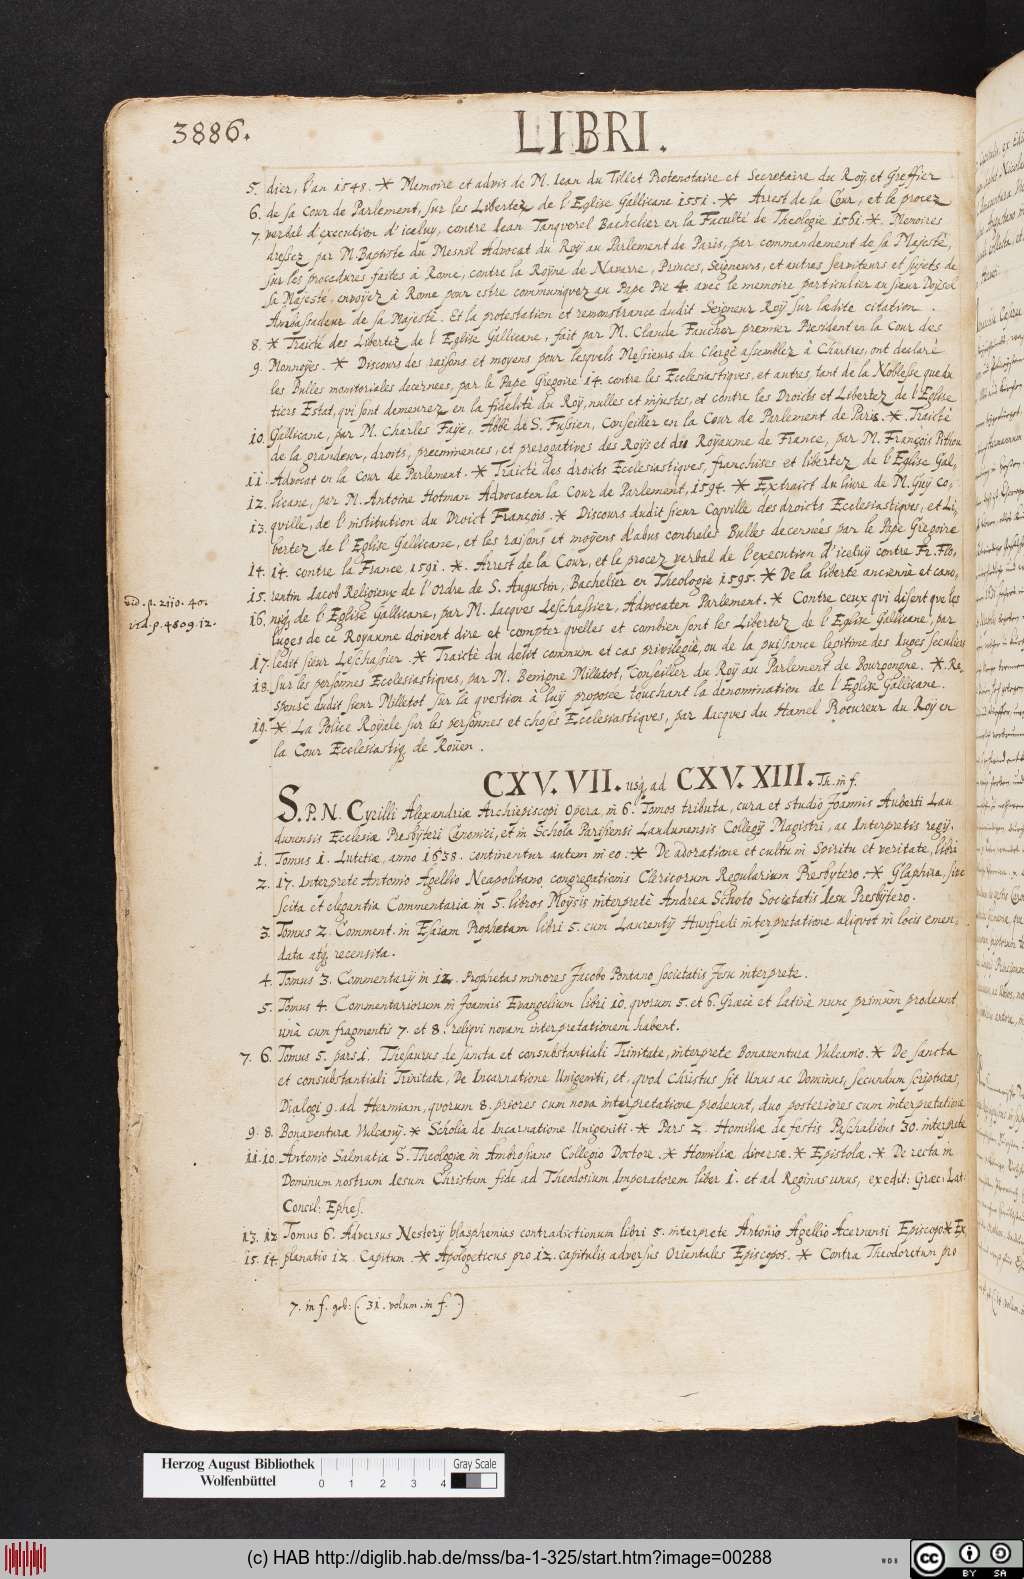 3886.
LIBRI.
5. dier, l'an 1548. * Memoire et advis de M. Iean du Tillet Protenotaire et Secretaire du Roÿ, et Greffier
6. de sa Cour de Parlement, sur les Libertez de l'Eglise Gallicane 1551. * Arrest de la Cour, et le procez
7. verbal d'execution d'iceluy, contre Iean Tanquerel Bachelier en la Faculté de Theologie 1561. * Memoires
dressez par M. Baptiste du Mesnil Advocat du Roÿ au Parlement de Paris, par commandement de sa Majestè,
sur les procedures faites à Rome, contre la Roÿne de Navarre, Princes, Seigneurs, et autres serviteurs et sujets de
sa Majestè, envoyez à Rome pour estre communiquez au Pape Pie 4. avec le memoire particulier au sieur Doÿsel
Ambassadeur de sa Majestè. Et la protestation et remonstrance dudit Seigneur Roÿ sur ladite citation.
8. * Traictè des Libertez de l'Eglise Gallicane, fait par M. Claude Faucher premier President en la Cour des
9. Monnoÿes. * Discours des raisons et moyens pour lesquels Messieurs du Clergè assemblez à Chartres, ont declarè
les Bulles monitoriales decernees, par le Pape Gregoire 14. contre les Ecclesiastiques, et autres, tant de la Noblesse que du
tiers Estat, qui sont demeurez en la fidelitè du Roÿ, nulles et injustes, et contre les Droicts et Libertez de l'Eglise
Gallicane, par M. Charles Faÿe, Abbè de S. Fussien, Conseiller en la Cour de Parlement de Paris. * Traictè
10. de la grandeur, droits, preeminences, et prerogatives des Roÿs et du Roÿaume de France, par M. François Pithou
11. Advocat en la Cour de Parlement. * Traictè des droicts Ecclesiastiques, franchises et libertez de l'Eglise Gal,
12. licane, par M. Antoine Hotman Advocat en la Cour de Parlement, 1594. * Extraict du livre de M. Guÿ Co,
13. quille, de l'institution du Droict François. * Discours dudit sieur Coquille des droicts Ecclesiastiques, et Li,
bertez de l'Eglise Gallicane, et les raisons et moÿens d'abus contre les Bulles decernées par le Pape Gregoire
14. 14. contre la France 1591. * Arrest de la Cour, et le procez verbal de l'execution d'iceluy contre Fr. Flo,
15. rentin Iacob Religieux de l'Ordre de S. Augustin, Bachelier en Theologie 1595. * De la liberte ancienne et cano,
vid. p. 2110. 40.
16. niq. de l'Eglise Gallicane, par M. Iacques Leschassier, Advocat en Parlement. * Contre ceux qui disent que les
vid. p. 4809. 12.
Iuges de ce Royaume doivent dire et compter quelles et combien sont les Libertez de l'Eglise Gallicane, par
17. ledit sieur Leschassier. * Traictè du delit commun et cas privilegiè, ou de la puissance legitime des Iuges seculiers
18. sur les personnes Ecclesiastiques, par M. Benigne Milletot, Conseiller du Roÿ au Parlement de Bourgongne. * Re,
sponse dudit sieur Milletot sur la question à luÿ proposee touchant la denomination de l'Eglise Gallicane.
19. * La Police Roÿale sur les personnes et choses Ecclesiastiques, par Iacques du Hamel Procureur du Roÿ en
la Cour Ecclesiastiq. de Roüen.
CXV. VII. usq. ad CXV. XIII. Th. in f.
S. P. N. Cyrilli Alexandriæ Archiepiscopi Opera, in 6. Tomos tributa, cura et studio Joannis Auberti Lau
dunensis Ecclesiæ Presbÿteri Canonici, et in Schola Parisiensi Laudunensis Collegij Magistri, ac Interpretis regij.
1. Tomus 1. Lutetiæ, anno 1638. continentur autem in eo: * De adoratione et cultu in Spiritu et veritate, libri
2. 17. Interprete Antonio Agellio Neapolitano, congregationis Clericorum Regularium Presbytero. * Glaphira, sive
scita et elegantia Commentaria in 5. libros Moysis interprete Andrea Schoto Societatis Iesu Presbÿtero.
3. Tomus 2. Comment. in Esaiam Prophetam libri 5. cum Laurentij Hunfredi interpretatione aliquot in locis emen,
data atq. recensita.
4. Tomus 3. Commentarij in 12. Prophetas minores Jacobo Pontano societatis Jesu interprete.
5. Tomus 4. Commentariorum in Joannis Evangelium libri 10. quorum 5. et 6. Græcè et latinè nunc primùm prodeunt
unà cum fragmentis 7. et 8. reliqvi novam interpretationem habent.
7. 6. Tomus 5. pars 1. Thesaurus de sancta et consubstantiali Trinitate, interprete Bonaventura Vulcanio. * De sancta
et consubstantiali Trinitate, De Incarnatione Unigeniti, et, quod Christus sit Unus ac Dominus, secundum scripturas,
Dialogi 9. ad Hermiam, quorum 8. priores cum nova interpretatione prodeunt, duo posteriores cum interpretatione
9. 8. Bonaventura Vulcanij. * Scholia de Incarnatione Unigeniti. * Pars 2. Homiliæ de festis Paschalibus 30. interprete
11. 10. Antonio Salmatia S. Theologiæ in Ambrosiano Collegio Doctore. * Homiliæ diversæ. * Epistolæ. * De recta in
Dominum nostrum Iesum Christum fide ad Theodosium Imperatorem liber 1. et ad Reginas unus, ex edit: Græc: Lat:
Concil: Ephes.
13. 12 Tomus 6. Adversus Nestorij blasphemias contradictionum libri 5. interprete Antonio Agellio Acernensi Episcopo * Ex
15. 14. planatio 12. Capitum. * Apologeticus pro 12. capitulis adversùs Orientales Episcopos. * Contra Theodoretum pro
7. in f. geb: (31. volum. in f.)
Herzog August Bibliothek
Wolfenbüttel
0 1 2 3 4
Gray Scale
(c) HAB http://diglib.hab.de/mss/ba-1-325/start.htm?image=00288
WDB
cc BY SA